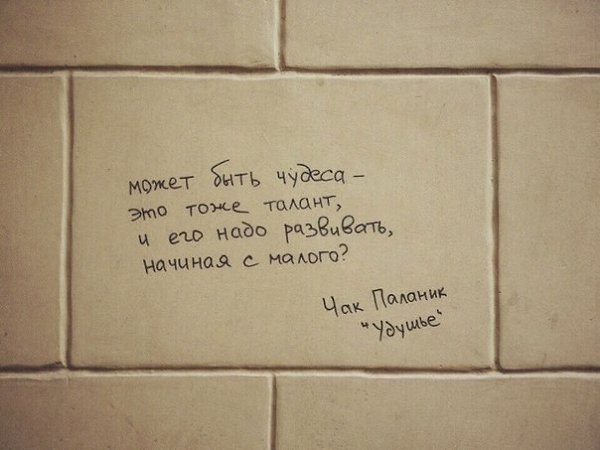 может быть чудеса –
это тоже талант,
и его надо развивать,
начиная с малого?
Чак Паланик
"Удушье"